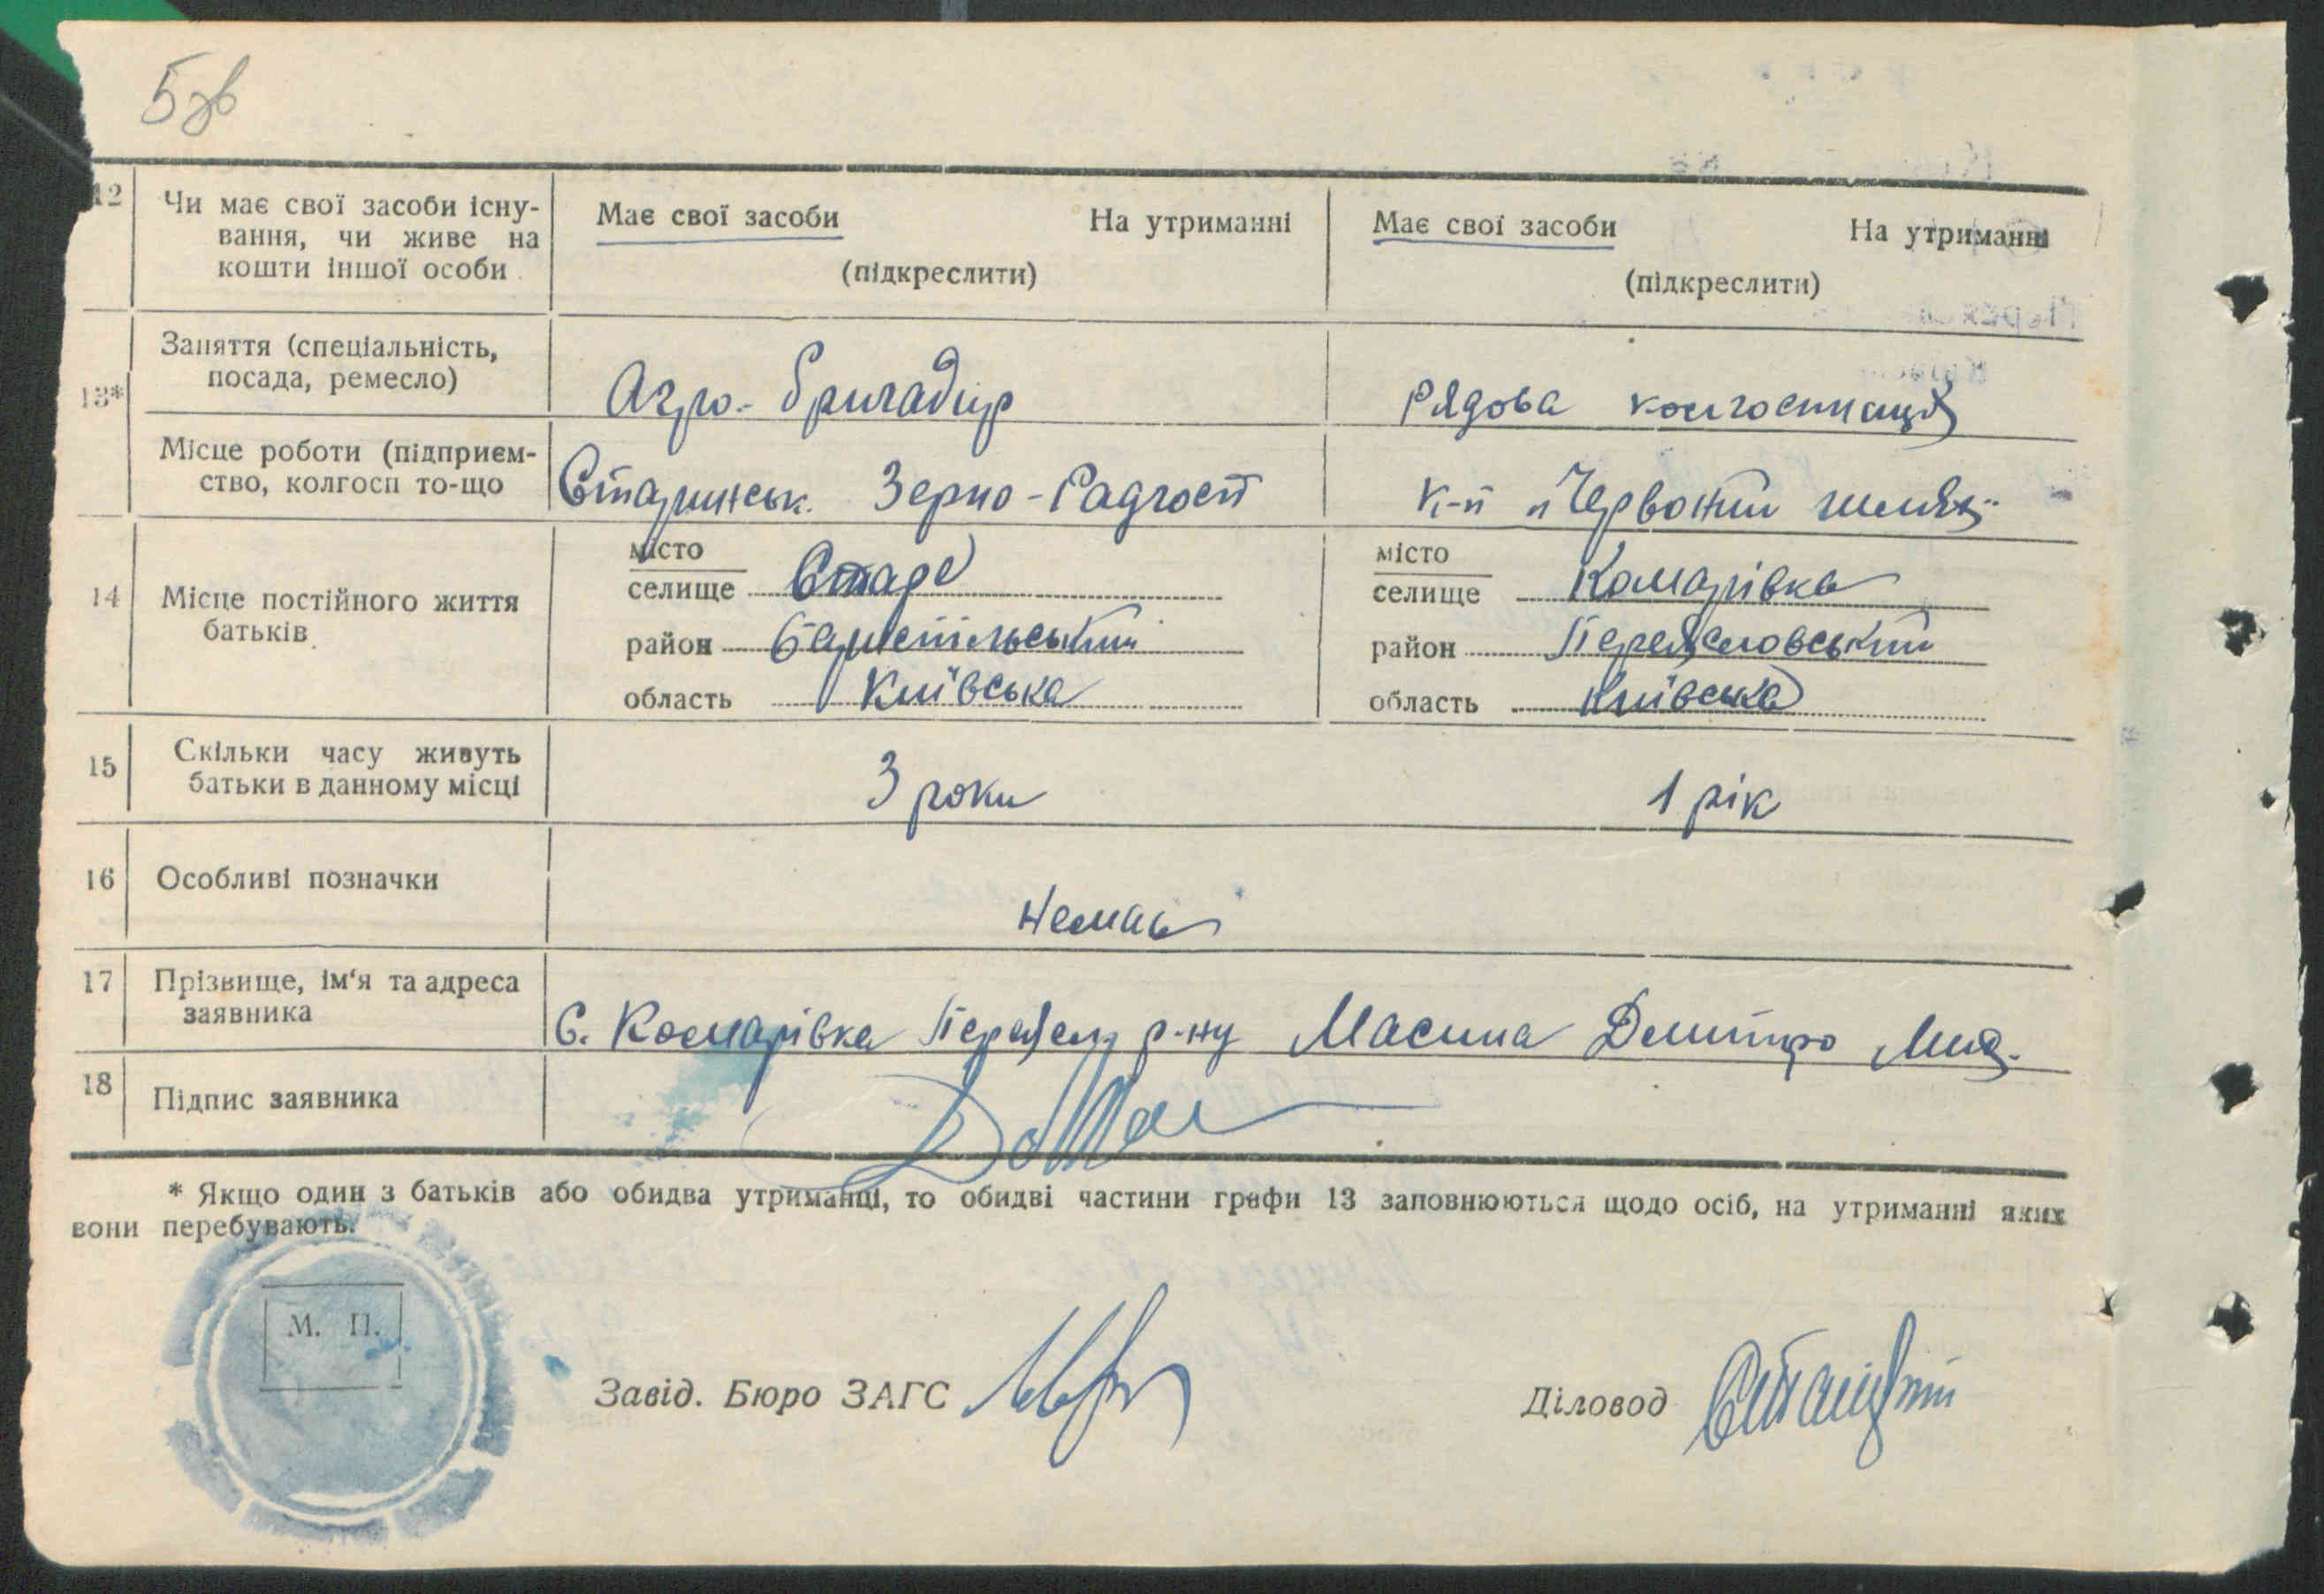 5 зв
12 Чи має свої засоби існу-
вання, чи живе на
кошти іншої особи
Має свої засоби На утриманні
(підкреслити)
Має свої засоби На утриманні
(підкреслити)
13* Заняття (спеціальність,
посада, ремесло)
Агро-бригадир
рядова колгоспниця
Місце роботи (підприєм-
ство, колгосп то-що
Старинськ. Зерно-Радгосп
к-п „Червоний шлях"
14 Місце постійного життя
батьків
місто
селище Старе
район Бориспільський
область Київська
місто
селище Комарівка
район Переяславський
область Київська
15 Скільки часу живуть
батьки в данному місці
3 роки
1 рік
16 Особливі позначки
немає
17 Прізвище, ім'я та адреса
заявника
С. Комарівка Переясл р-ну Масина Дмитро Мих.
18 Підпис заявника
* Якщо один з батьків або обидва утриманці, то обидві частини графи 13 заповнюються щодо осіб, на утриманні яких
вони перебувають.
М. П.
Завід. Бюро ЗАГС
Діловод